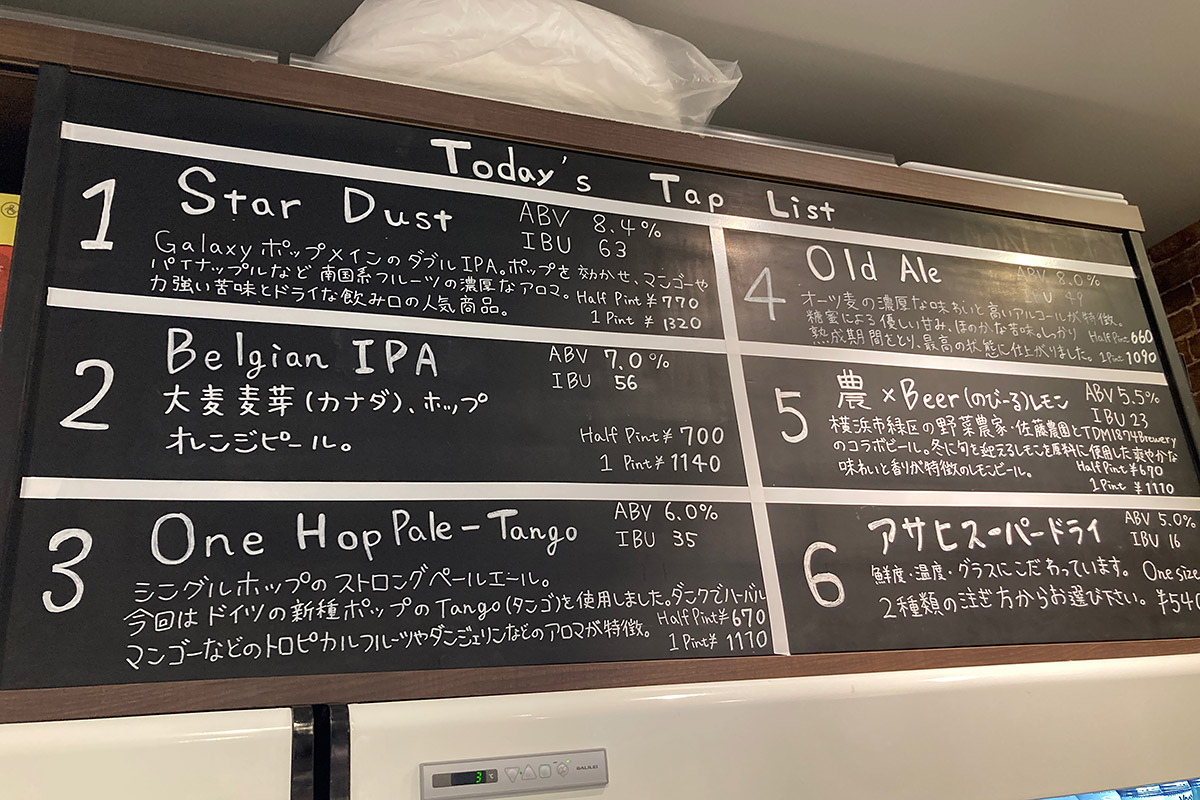 Today's Tap List
1 Star Dust ABV 8.4%
IBU 63
Galaxyホップメインのダブル IPA。ホップを効かせ、マンゴーや
パイナップルなど南国系フルーツの濃厚なアロマ。
力強い苦味とドライな飲み口の人気商品。
Half Pint ¥770
1 Pint ¥1320
2 Belgian IPA ABV 7.0%
IBU 56
大麦麦芽(カナダ)、ホップ
オレンジピール。
Half Pint ¥700
1 Pint ¥1140
3 One Hop Pale-Tango ABV 6.0%
IBU 35
シングルホップのストロングペールエール。
今回はドイツの新種ホップのTango(タンゴ)を使用しました。ダンクでハーバル
マンゴーなどのトロピカルフルーツやダンジェリンなどのアロマが特徴。
Half Pint ¥670
1 Pint ¥1170
4 Old Ale ABV 8.0%
IBU 49
オーツ麦の濃厚な味わいと高いアルコールが特徴。
糖蜜による優しい甘み、ほのかな苦味。しっかり
熟成期間をとり、最高の状態に仕上がりました。
Half Pint 660
1 Pint 1090
5 農×Beer(のびーる)レモン ABV 5.5%
IBU 23
横浜市緑区の野菜農家・佐藤農園とTDM1874Brewery
のコラボビール。冬に旬を迎えるレモンを原料に使用した爽やかな
味わいと香りが特徴のレモンビール。
Half Pint ¥670
1 Pint ¥1170
6 アサヒスーパードライ ABV 5.0%
IBU 16
鮮度・温度・グラスにこだわっています。 One size
2種類の注ぎ方からお選び下さい。 ¥540
3 ℃
GALILEI